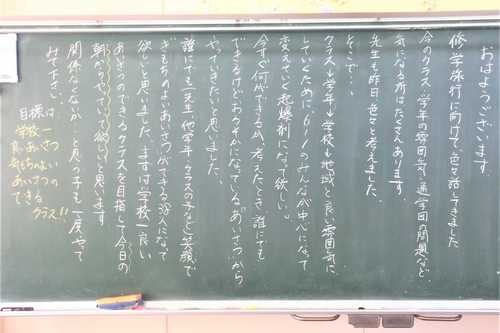 おはようございます。
修学旅行に向けて、色々話してきました
今のクラス、学年の雰囲気、通学団の問題など、
気になる所はたくさんあります。
先生も昨日、色々と考えました。
そこで…
クラス→学年→学校→地域と良い雰囲気に
していくために、6-1のみんなが中心になって
変えていく起爆剤になって欲しい。
今すぐ何ができるか、考えたとき、誰にでも
できるけどおろそかになっている"あいさつ"から
やっていきたいと思いました。
誰にでも(先生、他学年、クラスの子など)笑顔で
きもちのよいあいさつができる人になって
欲しいと思いました。まずは学校一良い
あいさつのできるクラスを目指して今日の
朝からやってい欲しいと思います
関係なくないか…と思った子も一度やって
みて下さい。
目標は
学校一
良いあいさつ
気もちのよい
あいさつの
できる
クラス!!